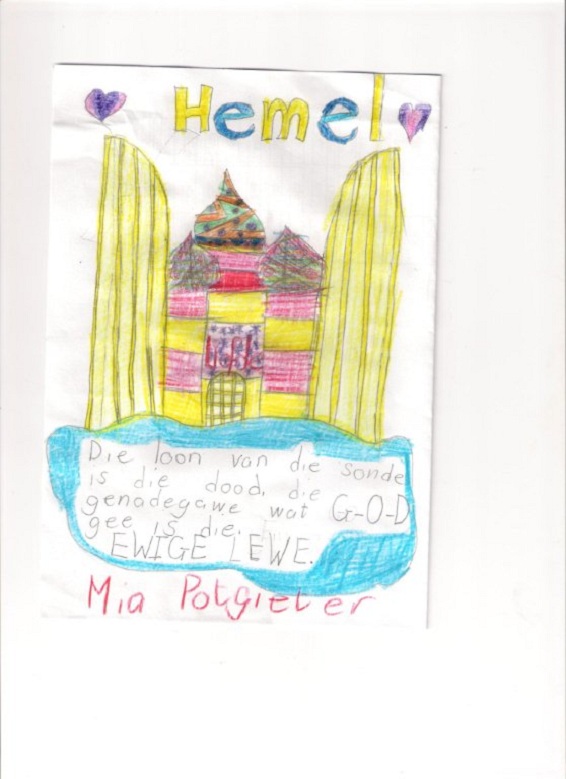 Hemel
Die loon van die sonde
is die dood, die
genadegawe wat G-O-D
gee is die.
EWIGE LEWE.
Mia Potgieter